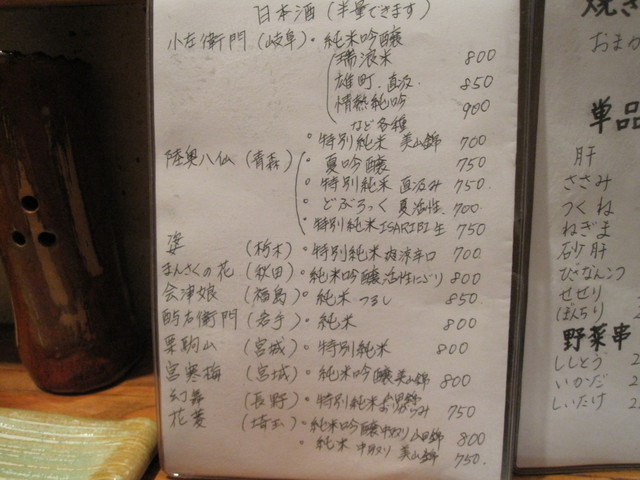 日本酒(半量できます)
小左衛門(岐阜)・純米吟醸
瑞浪米 800
雄町.直汲. 850
情熱純吟 900
など各種
・特別純米 美山錦 700
陸奥八仙(青森)・夏吟醸 750
・特別純米 直汲み 750.
・どぶろっく 夏活性. 700.
・特別純米ISARIBI生 750
姿 (栃木)・特別純米 辛口 700
まんさくの花(秋田)・純米吟醸活性にごり 800
会津娘 (福島)・純米 つるし 850.
酉与右衛門(岩手)・純米 800
栗駒山 (宮城)・特別純米 800
宮寒梅 (宮城)・純米吟醸美山錦 800
幻舞 (長野)・特別純米 750
花菱 (埼玉)・純米吟醸中汲り山田錦 800
・純米 中汲り 美山錦 750.
焼き
おまか
単品
肝
ささみ
つくね
ねぎま
砂肝
ひざなんこつ
せせり
ぼんちり 2
野菜串
ししとう 2
いかだ 2
しいたけ 2